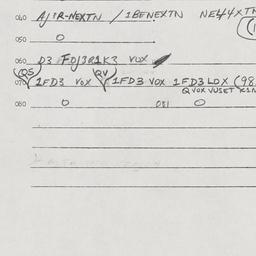 040 AJIR-NEXTN / IBENEXTN NE44XTN
050 0
060 D3 FDJ3R1K3 VUX
QS QV
070 1FD3 VOX 1FD3 VOX 1FD3 LOX (98
QVOX VUSET X1N
080 0 081 0